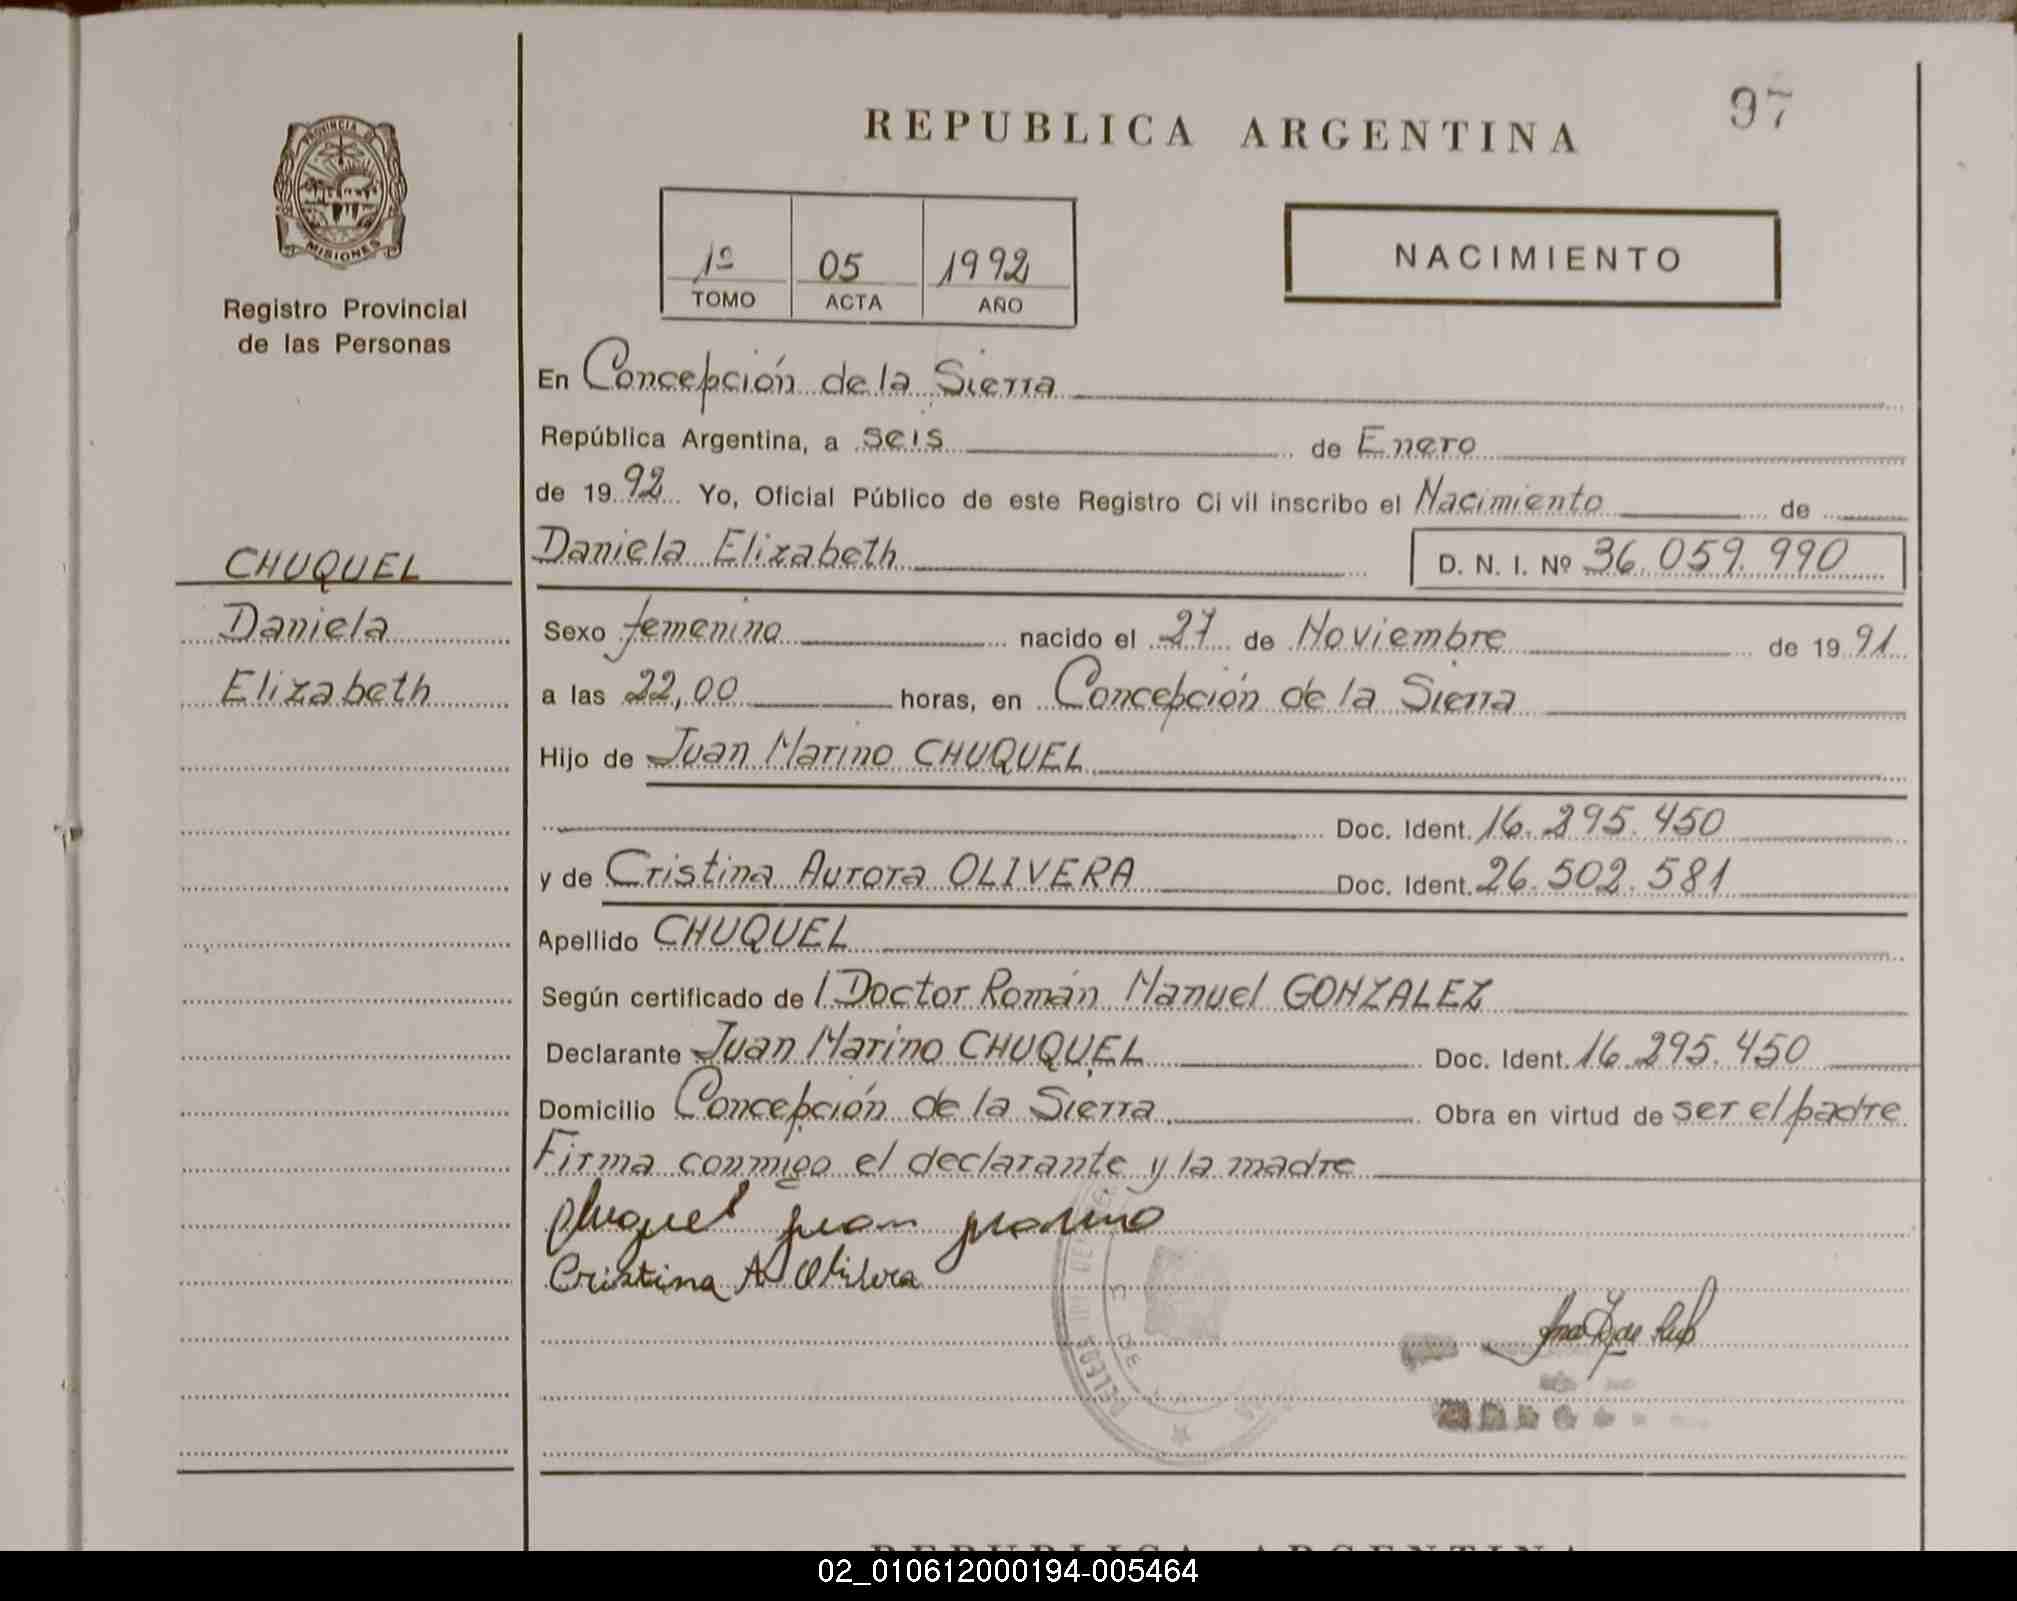 97
REPUBLICA ARGENTINA
PROVINCIA DE
MISIONES
Registro Provincial
de las Personas
1º 05 1992
TOMO ACTA AÑO
NACIMIENTO
CHUQUEL
Daniela
Elizabeth
En Concepción de la Sierra
República Argentina, a seis de Enero
de 1992 Yo, Oficial Público de este Registro Civil inscribo el Nacimiento de
Daniela Elizabeth D. N. I. Nº 36.059.990
Sexo femenino nacido el 27 de Noviembre de 1991
a las 22,00 horas, en Concepción de la Sierra
Hijo de Juan Marino CHUQUEL
Doc. Ident. 16.295.450
y de Cristina Aurora OLIVERA Doc. Ident. 26.502.581
Apellido CHUQUEL
Según certificado del Doctor Román Manuel GONZALEZ
Declarante Juan Marino CHUQUEL Doc. Ident. 16.295.450
Domicilio Concepción de la Sierra Obra en virtud de ser el padre
Firma conmigo el declarante y la madre
Chuquel Juan Marino
Cristina A Olivera
REPUBLICA ARGENTINA
02_010612000194-005464